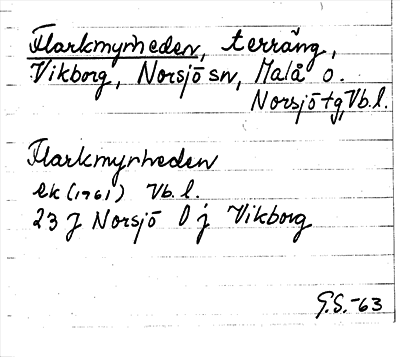 Flarkmyrheden, terräng,
Vikborg, Norsjö sn, Malå o.
Norsjö tg, Vb. l.
Flarkmyrheden
ek (1961) Vb. l.
23 J Norsjö 0 j Vikborg
G.S.-63